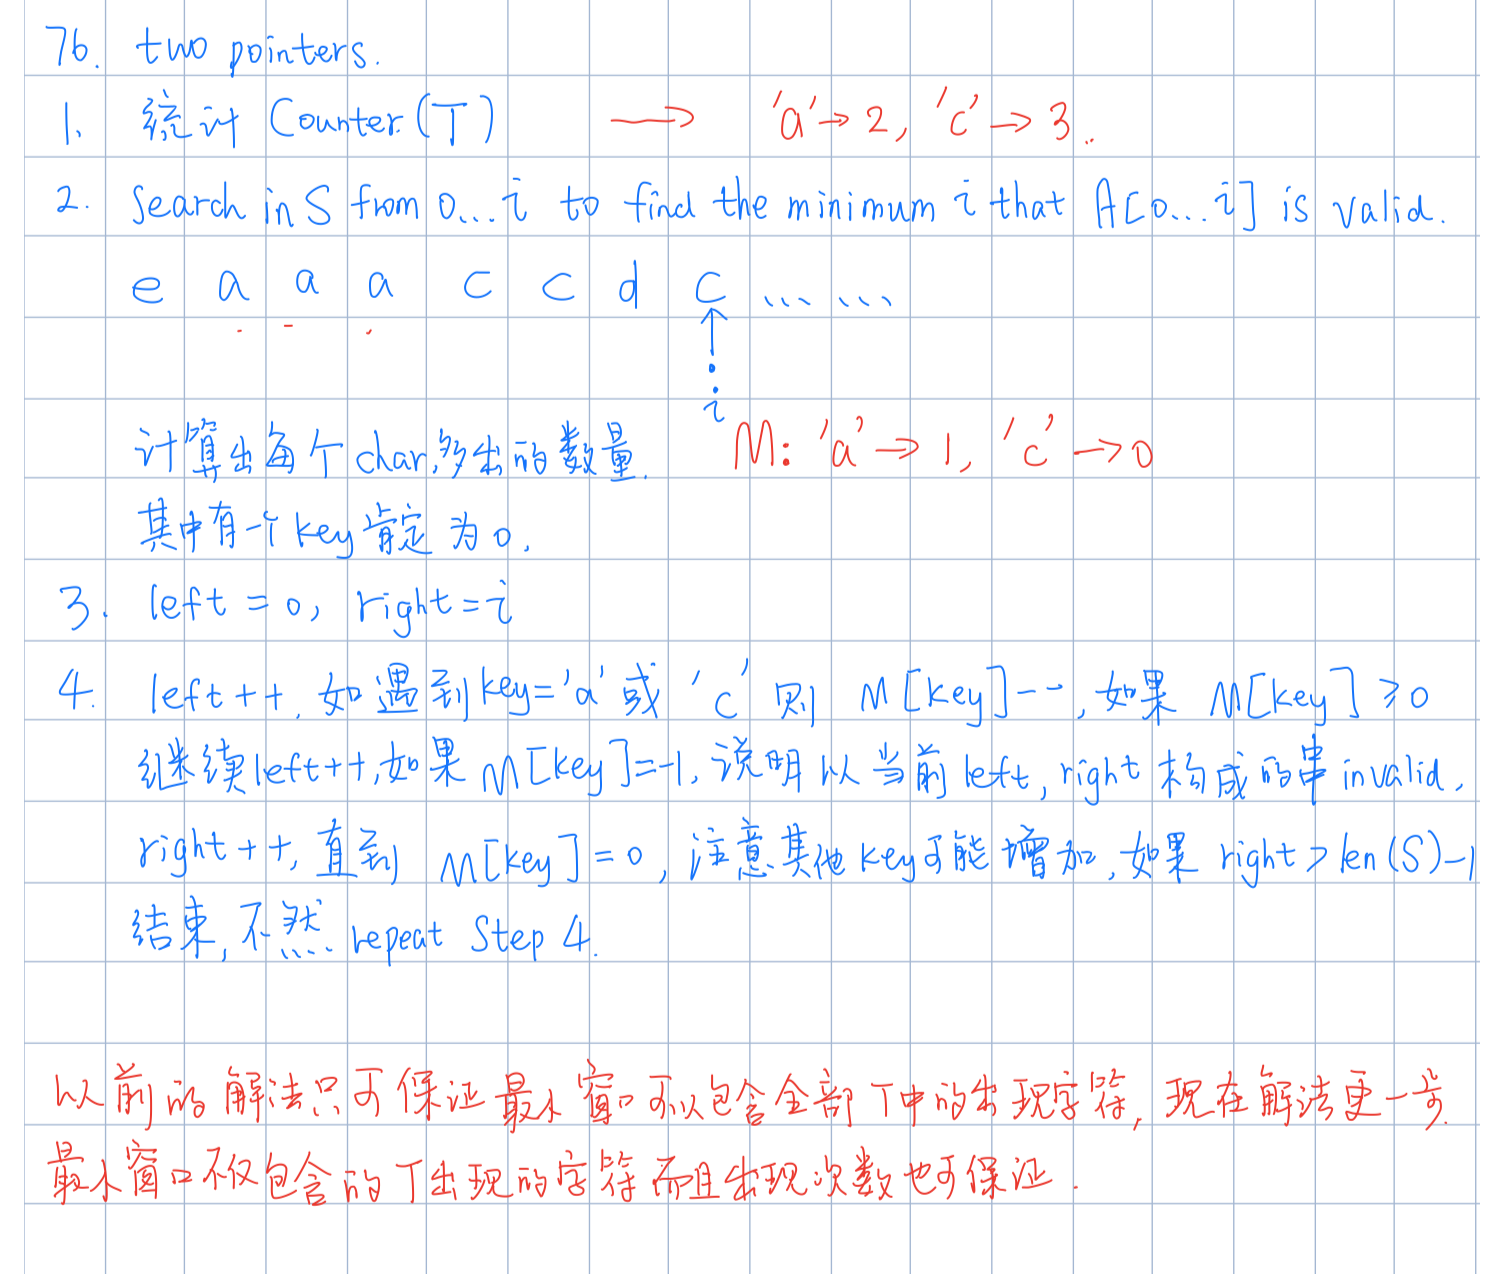 76. two pointers.
1. 统计 Counter(T) → 'a'→2, 'c'→3.
2. Search in S from 0...i to find the minimum i that A[0...i] is valid.
e a a a c c d c ... ...
i
计算出每个char多出的数量. M: 'a'→1, 'c'→0
其中有一个key肯定为0.
3. left = 0, right = i
4. left++, 如遇到key='a'或'c'则 M[key]--, 如果 M[key]≥0
继续left++, 如果M[key]=-1, 说明以当前left, right构成的串invalid,
right++, 直到 M[key]=0, 注意其他key可能增加, 如果 right>len(S)-1
结束, 不然 repeat Step 4.
以前的解法只可保证最小窗口可以包含全部T中的出现字符, 现在解法更一步.
最小窗口不仅包含的T出现的字符而且出现次数也可保证.